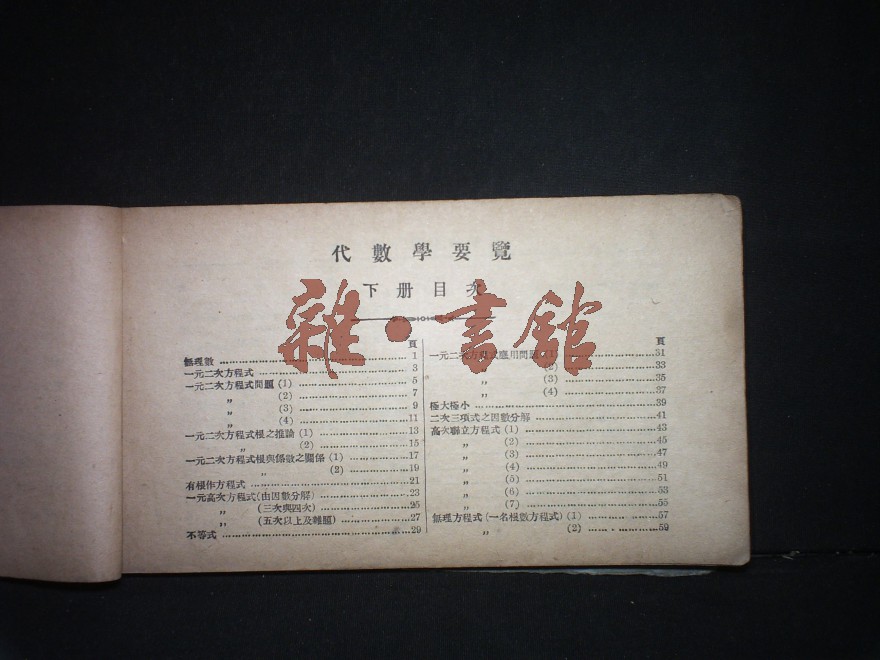 代數學要覽
下册目次
雜·書館
頁
無理數 1
一元二次方程式 3
一元二次方程式問題 (1) 5
〃 (2) 7
〃 (3) 9
〃 (4) 11
一元二次方程式根之推論 (1) 13
〃 (2) 15
一元二次方程式根與係數之關係 (1) 17
〃 (2) 19
有根作方程式 21
一元高次方程式(由因數分解) 23
〃 (三次與四次) 25
〃 (五次以上及雜題) 27
不等式 29
頁
一元二次方程式應用問題 (1) 31
〃 (2) 33
〃 (3) 35
〃 (4) 37
極大極小 39
二次三項式之因數分解 41
高次聯立方程式 (1) 43
〃 (2) 45
〃 (3) 47
〃 (4) 49
〃 (5) 51
〃 (6) 53
〃 (7) 55
無理方程式(一名根數方程式) (1) 57
〃 (2) 59